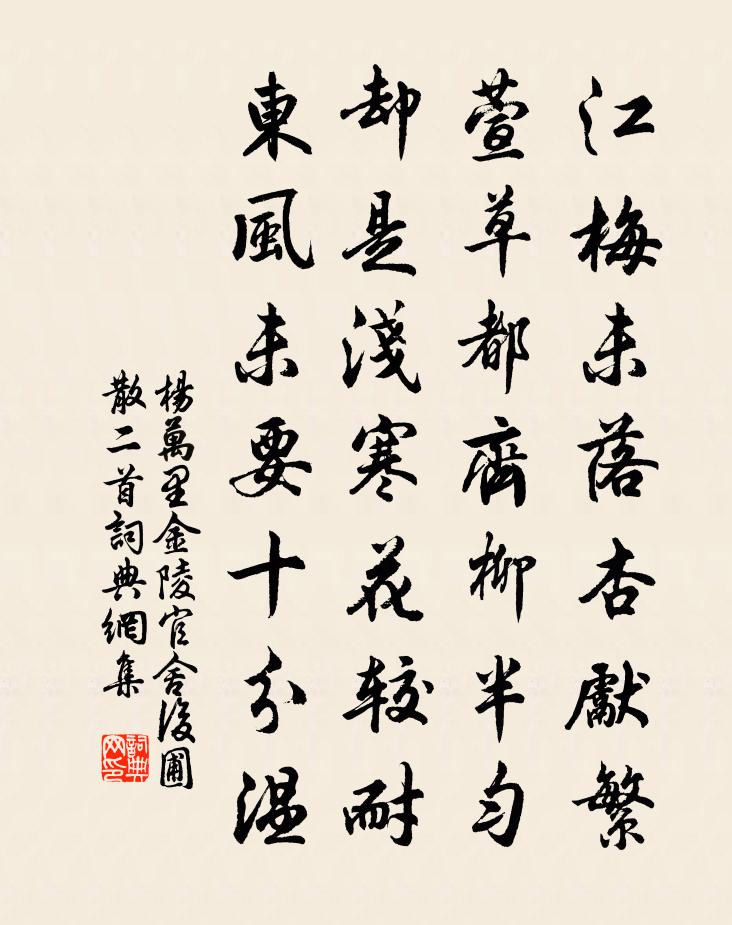 江梅未落杏獻繁
萱草都齊柳半勻
却是淺寒花較耐
東風未要十分温
楊萬里金陵官舍後圃
散二首詞典網集
詞典網印